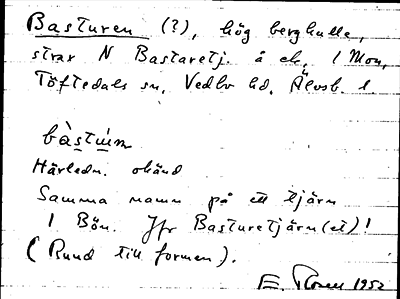 Basturen (?), hög bergkulle,
strax N Bastaretj. å ek. l Mon,
Töftedals sn, Vedbo hd, Älvsb. l.
bàstúm
Härledn. okänd
Samma namn på ett tjärn
I Bön. Jfr Basturetjärn(et)!
(Rund till formen).
E. 1952